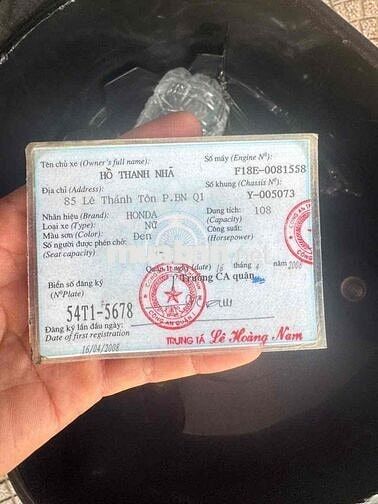 Tên chủ xe (Owner's full name):
HỒ THANH NHÃ
Số máy (Engine Nº):
F18E-0081558
Địa chỉ (Address):
85 Lê Thánh Tôn P.BN Q1
Số khung (Chassis Nº):
Y-005073
Nhãn hiệu (Brand): HONDA
Dung tích: 108
(Capacity)
Loại xe (Type): NỮ
Công suất:
(Horsepower)
Màu sơn (Color): Đen
Số người được phép chở:
(Seat capacity)
Quận 1, ngày (date) 16 tháng 4 2008
Trưởng CA quận
Biển số đăng ký
(Nº Plate)
54T1-5678
Đăng ký lần đầu ngày:
Date of first registration
16/04/2008
CÔNG AN QUẬN 1
TRUNG TÁ Lê Hoàng Nam